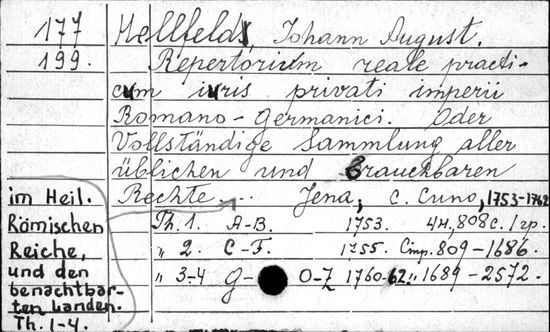 177 Hellfeld, Johann August.
199. Repertorium reale practi-
cum iuris privati imperii
Romano-Germanici. Oder
Vollständige Sammlung aller
üblichen und brauchbaren
Rechte ... Jena, C. Cuno, 1753-1762
Th. 1. A-B. 1753. 4н, 808 c. 1 гр.
" 2. C-F. 1755. Стр. 809-1686.
" 3-4 G- O-Z 1760-62. " 1689-2572.
im Heil.
Römischen
Reiche,
und den
benachtbar-
ten Landen.
Th. 1-4.